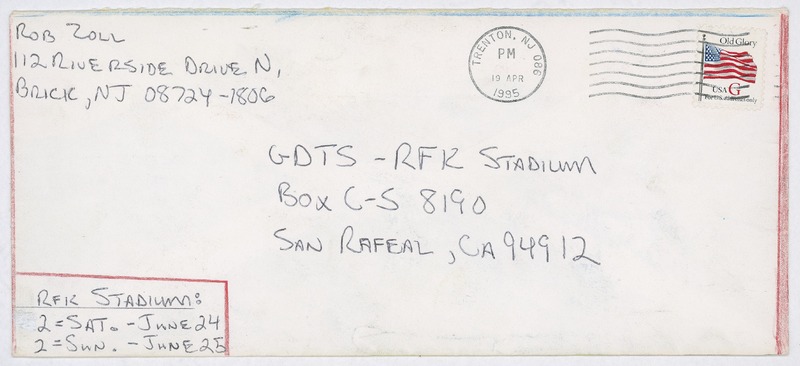 ROB ZOLL
112 RIVERSIDE DRIVE N,
BRICK, NJ 08724-1806
TRENTON, NJ 086
PM
19 APR
1995
Old Glory
USA G
For U.S. addresses only
GDTS - RFK STADIUM
BOX C-S 8190
SAN RAFEAL, CA 94912
RFK STADIUM:
2 = SAT. - JUNE 24
2 = SUN. - JUNE 25